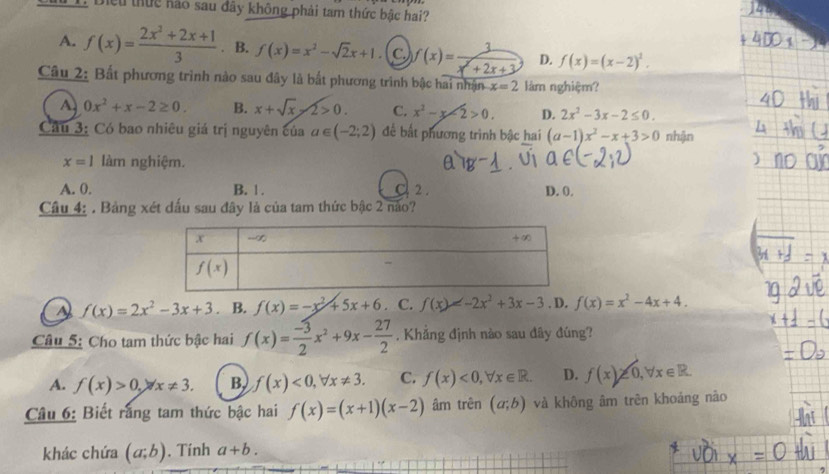 thức nào sau đây không phải tam thức bậc hai?
A. f(x) = (2x² + 2x + 1)/3 . B. f(x) = x² - √2x + 1 . C. f(x) = 3/(x² + 2x + 3) D. f(x) = (x - 2)² .
Câu 2: Bất phương trình nào sau đây là bất phương trình bậc hai nhận x = 2 làm nghiệm?
A. 0x² + x - 2 ≥ 0 . B. x + √x - 2 > 0 . C. x² - x - 2 > 0 . D. 2x² - 3x - 2 ≤ 0 .
Câu 3: Có bao nhiêu giá trị nguyên của a ∈ (-2;2) để bất phương trình bậc hai (a - 1)x² - x + 3 > 0 nhận
x = 1 làm nghiệm.
-1. Vì a ∈ (-2;2)
A. 0. B. 1. C. 2. D. 0.
Câu 4: . Bảng xét dấu sau đây là của tam thức bậc 2 nào?
x -∞ +∞
f(x) -
A. f(x) = 2x² - 3x + 3 . B. f(x) = -x² + 5x + 6 . C. f(x) = -2x² + 3x - 3 . D. f(x) = x² - 4x + 4 .
Câu 5: Cho tam thức bậc hai f(x) = -3/2 x² + 9x - 27/2 . Khẳng định nào sau đây đúng?
A. f(x) > 0, ∀x ≠ 3. B. f(x) < 0, ∀x ≠ 3. C. f(x) < 0, ∀x ∈ ℝ. D. f(x) ≥ 0, ∀x ∈ ℝ.
Câu 6: Biết rằng tam thức bậc hai f(x) = (x + 1)(x - 2) âm trên (a;b) và không âm trên khoảng nào
khác chứa (a;b). Tính a + b .
+ với x = 0 thì